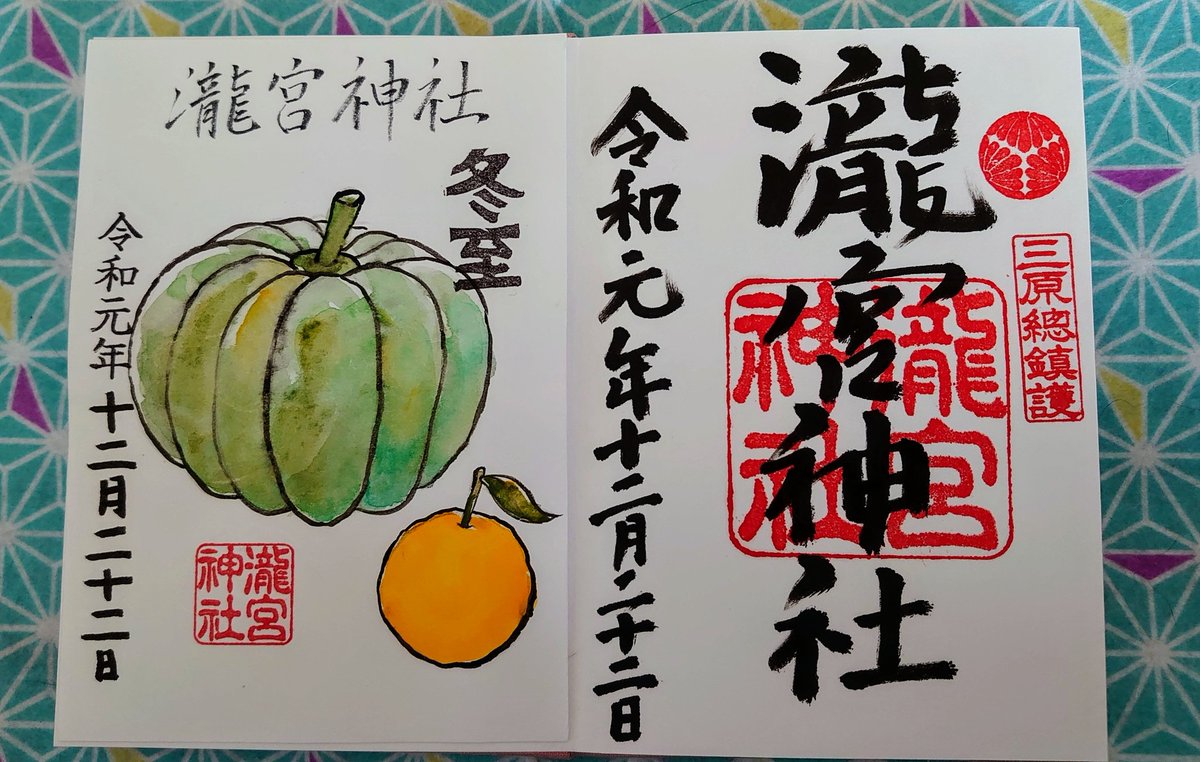 瀧宮神社
冬至
令和元年十二月二十二日
瀧宮
神社
三原總鎮護
瀧宮神社
瀧宮
神社
令和元年十二月二十二日